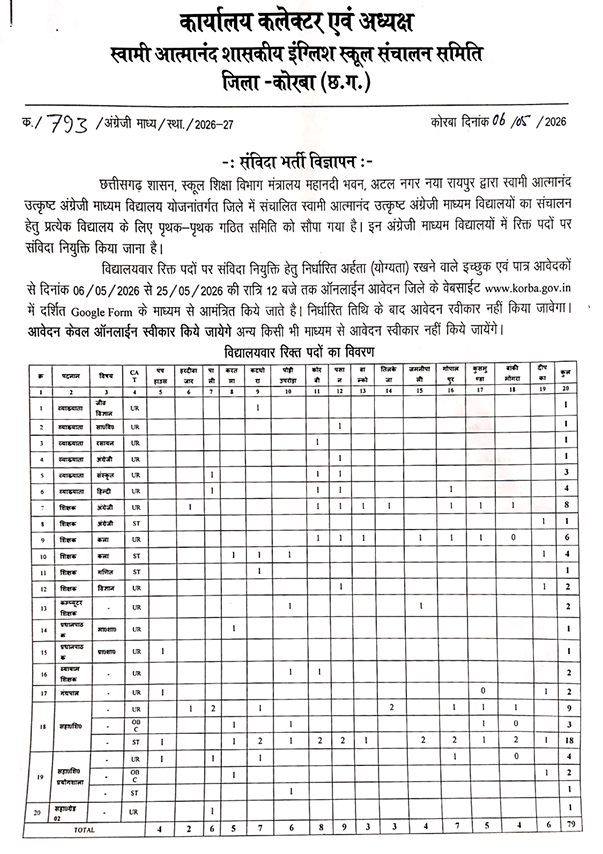 कार्यालय कलेक्टर एवं अध्यक्ष
स्वामी आत्मानंद शासकीय इंग्लिश स्कूल संचालन समिति
जिला -कोरबा (छ.ग.)
क./ 793 /अंग्रेजी माध्य/स्था./2026-27 कोरबा दिनांक 06 /05 /2026
-: संविदा भर्ती विज्ञापन :-
छत्तीसगढ़ शासन, स्कूल शिक्षा विभाग मंत्रालय महानदी भवन, अटल नगर नया रायपुर द्वारा स्वामी आत्मानंद
उत्कृष्ट अंग्रेजी माध्यम विद्यालय योजनांतर्गत जिले में संचालित स्वामी आत्मानंद उत्कृष्ट अंग्रेजी माध्यम विद्यालयों का संचालन
हेतु प्रत्येक विद्यालय के लिए पृथक–पृथक गठित समिति को सौपा गया है। इन अंग्रेजी माध्यम विद्यालयों में रिक्त पदों पर
संविदा नियुक्ति किया जाना है।
विद्यालयवार रिक्त पदों पर संविदा नियुक्ति हेतु निर्धारित अर्हता (योग्यता) रखने वाले इच्छुक एवं पात्र आवेदकों
से दिनांक 06/05/2026 से 25/05/2026 की रात्रि 12 बजे तक ऑनलाईन आवेदन जिले के वेबसाईट www.korba.gov.in
में दर्शित Google Form के माध्यम से आमंत्रित किये जाते है। निर्धारित तिथि के बाद आवेदन स्वीकार नहीं किया जावेगा।
आवेदन केवल ऑनलाईन स्वीकार किये जायेगे अन्य किसी भी माध्यम से आवेदन स्वीकार नहीं किये जायेंगे।
विद्यालयवार रिक्त पदों का विवरण
क्र पदनाम विषय CAT पप हाउस हरदीबाजार पाली करतला कटघोरा पोड़ी उपरोड़ा कोरबी पसान बाल्को तिलकेजा जमनीपाली गोपालपुर कुसमुण्डा बांकी मोंगरा दीपका कुल
1 2 3 4 5 6 7 8 9 10 11 12 13 14 15 16 17 18 19 20
1 व्याख्याता जीव विज्ञान UR 1 1
2 व्याख्याता सा०वि० UR 1 1
3 व्याख्याता रसायन UR 1 1
4 व्याख्याता अंग्रेजी UR 1 1
5 व्याख्याता संस्कृत UR 1 1 1 3
6 व्याख्याता हिन्दी UR 1 1 1 1 4
7 शिक्षक अंग्रेजी UR 1 1 1 1 1 1 1 1 8
8 शिक्षक अंग्रेजी ST 1 1
9 शिक्षक कला UR 1 1 1 1 1 1 0 6
10 शिक्षक कला ST 1 1 1 1 4
11 शिक्षक गणित ST 1 1
12 शिक्षक विज्ञान UR 1 1 2
13 कम्प्यूटर शिक्षक - UR 1 1 2
14 प्रधानपाठक मा०शा० UR 1 1
15 प्रधानपाठक प्रा०शा० UR 1 1
16 व्यायाम शिक्षक - UR 1 1 2
17 ग्रंथपाल - UR 1 0 1 2
18 सहा०शि० - UR 1 2 1 2 1 1 1 9
- OBC 1 1 1 0 3
- ST 1 1 2 1 2 2 1 2 2 1 2 1 18
19 सहा०शि० प्रयोगशाला - UR 1 1 1 1 0 4
- OBC 1 1 2
- ST 1 1
20 सहा०ग्रेड 02 - UR 1 1
TOTAL 4 2 6 5 7 6 8 9 3 3 4 7 5 4 6 79